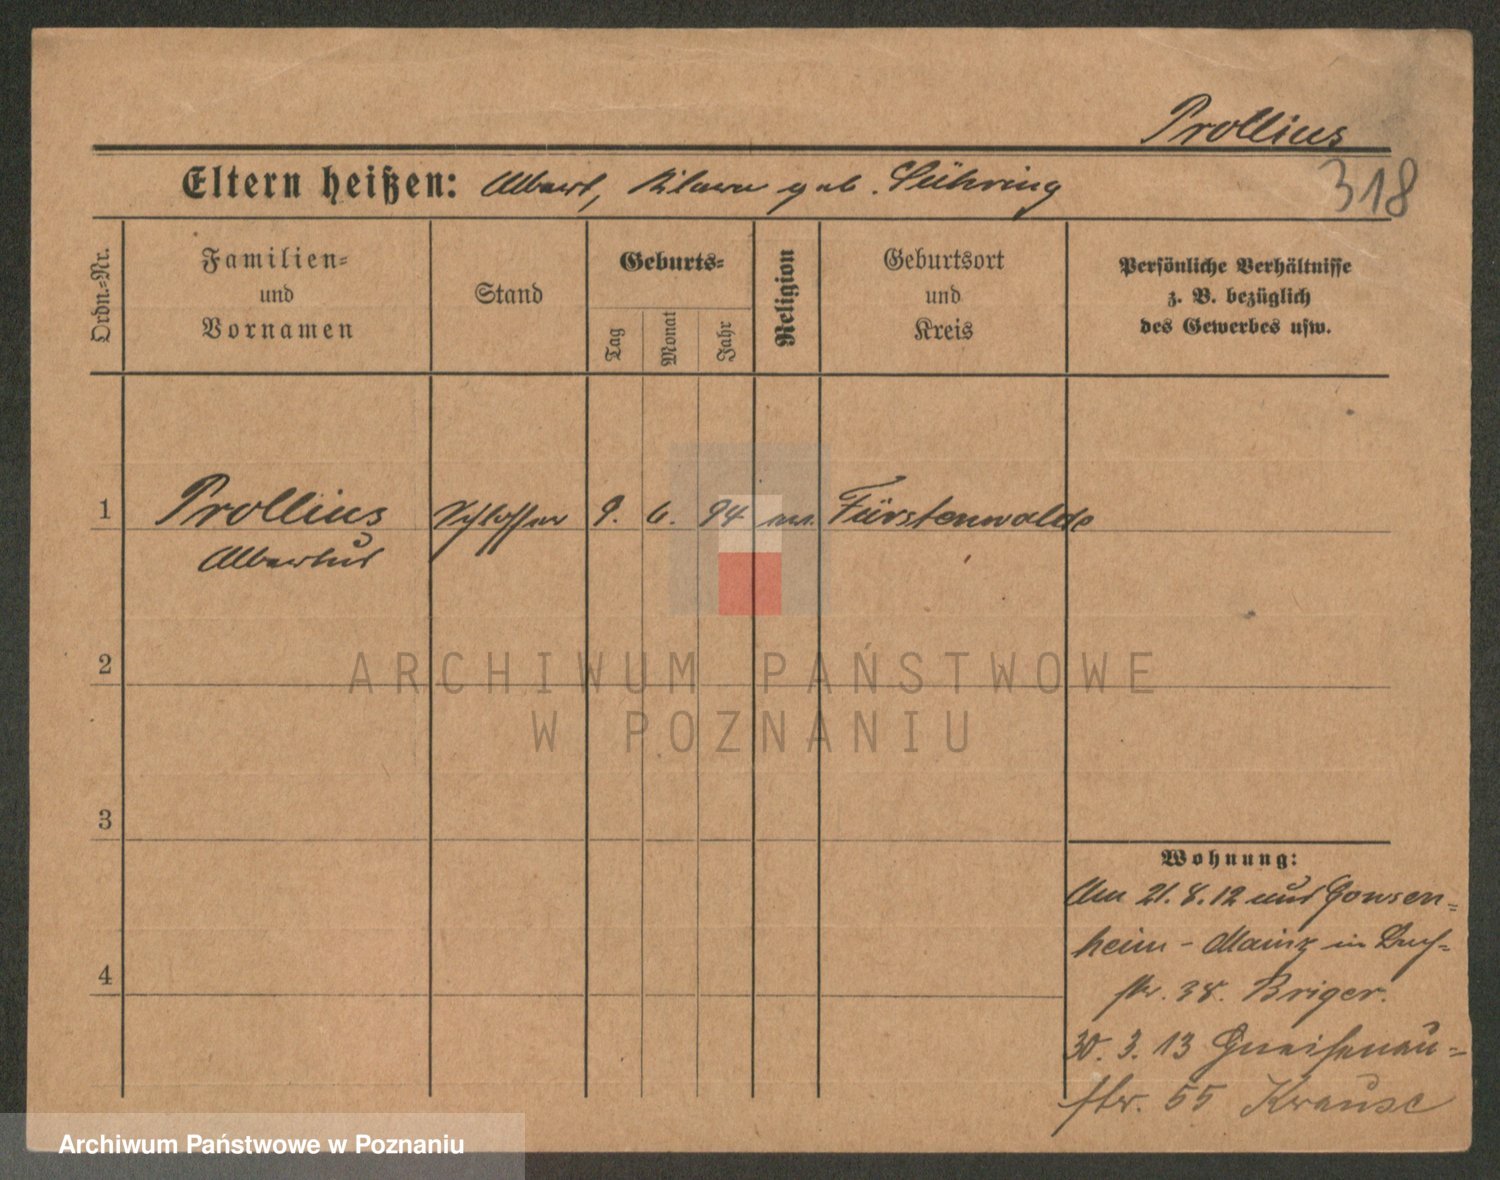 Prollius
318
Eltern heißen: Albert, Klara geb. Sühring
Ordn.-Nr.
Familien-
und
Vornamen
Stand
Geburts-
Tag
Monat
Jahr
Religion
Geburtsort
und
Kreis
Persönliche Verhältnisse
z. B. bezüglich
des Gewerbes usw.
1 Prollius Schlosser 9. 6. 94 Fürstenwalde
Albertus
2
ARCHIWUM PAŃSTWOWE
W POZNANIU
3
Wohnung:
Am 21. 8. 12 aus Gonsen-
heim - Mainz in
str. 38. Briger.
4
30. 3. 13 Gneisenau-
str. 55 Krause
Archiwum Państwowe w Poznaniu